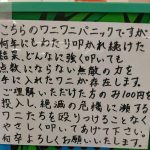 こちらのワニワニパニックですが、
何年にもわたり叩かれ続けた
結果、どんなに強く叩いても
点数にならない無敵の力を
手に入れたワニが存在します。
ご理解いただける方のみ100円を
投入し、絶滅の危機に瀕する
ワニたちを殴りつけることなく
やさしく叩いてあげて下さい。
何卒よろしくお願いいたします。